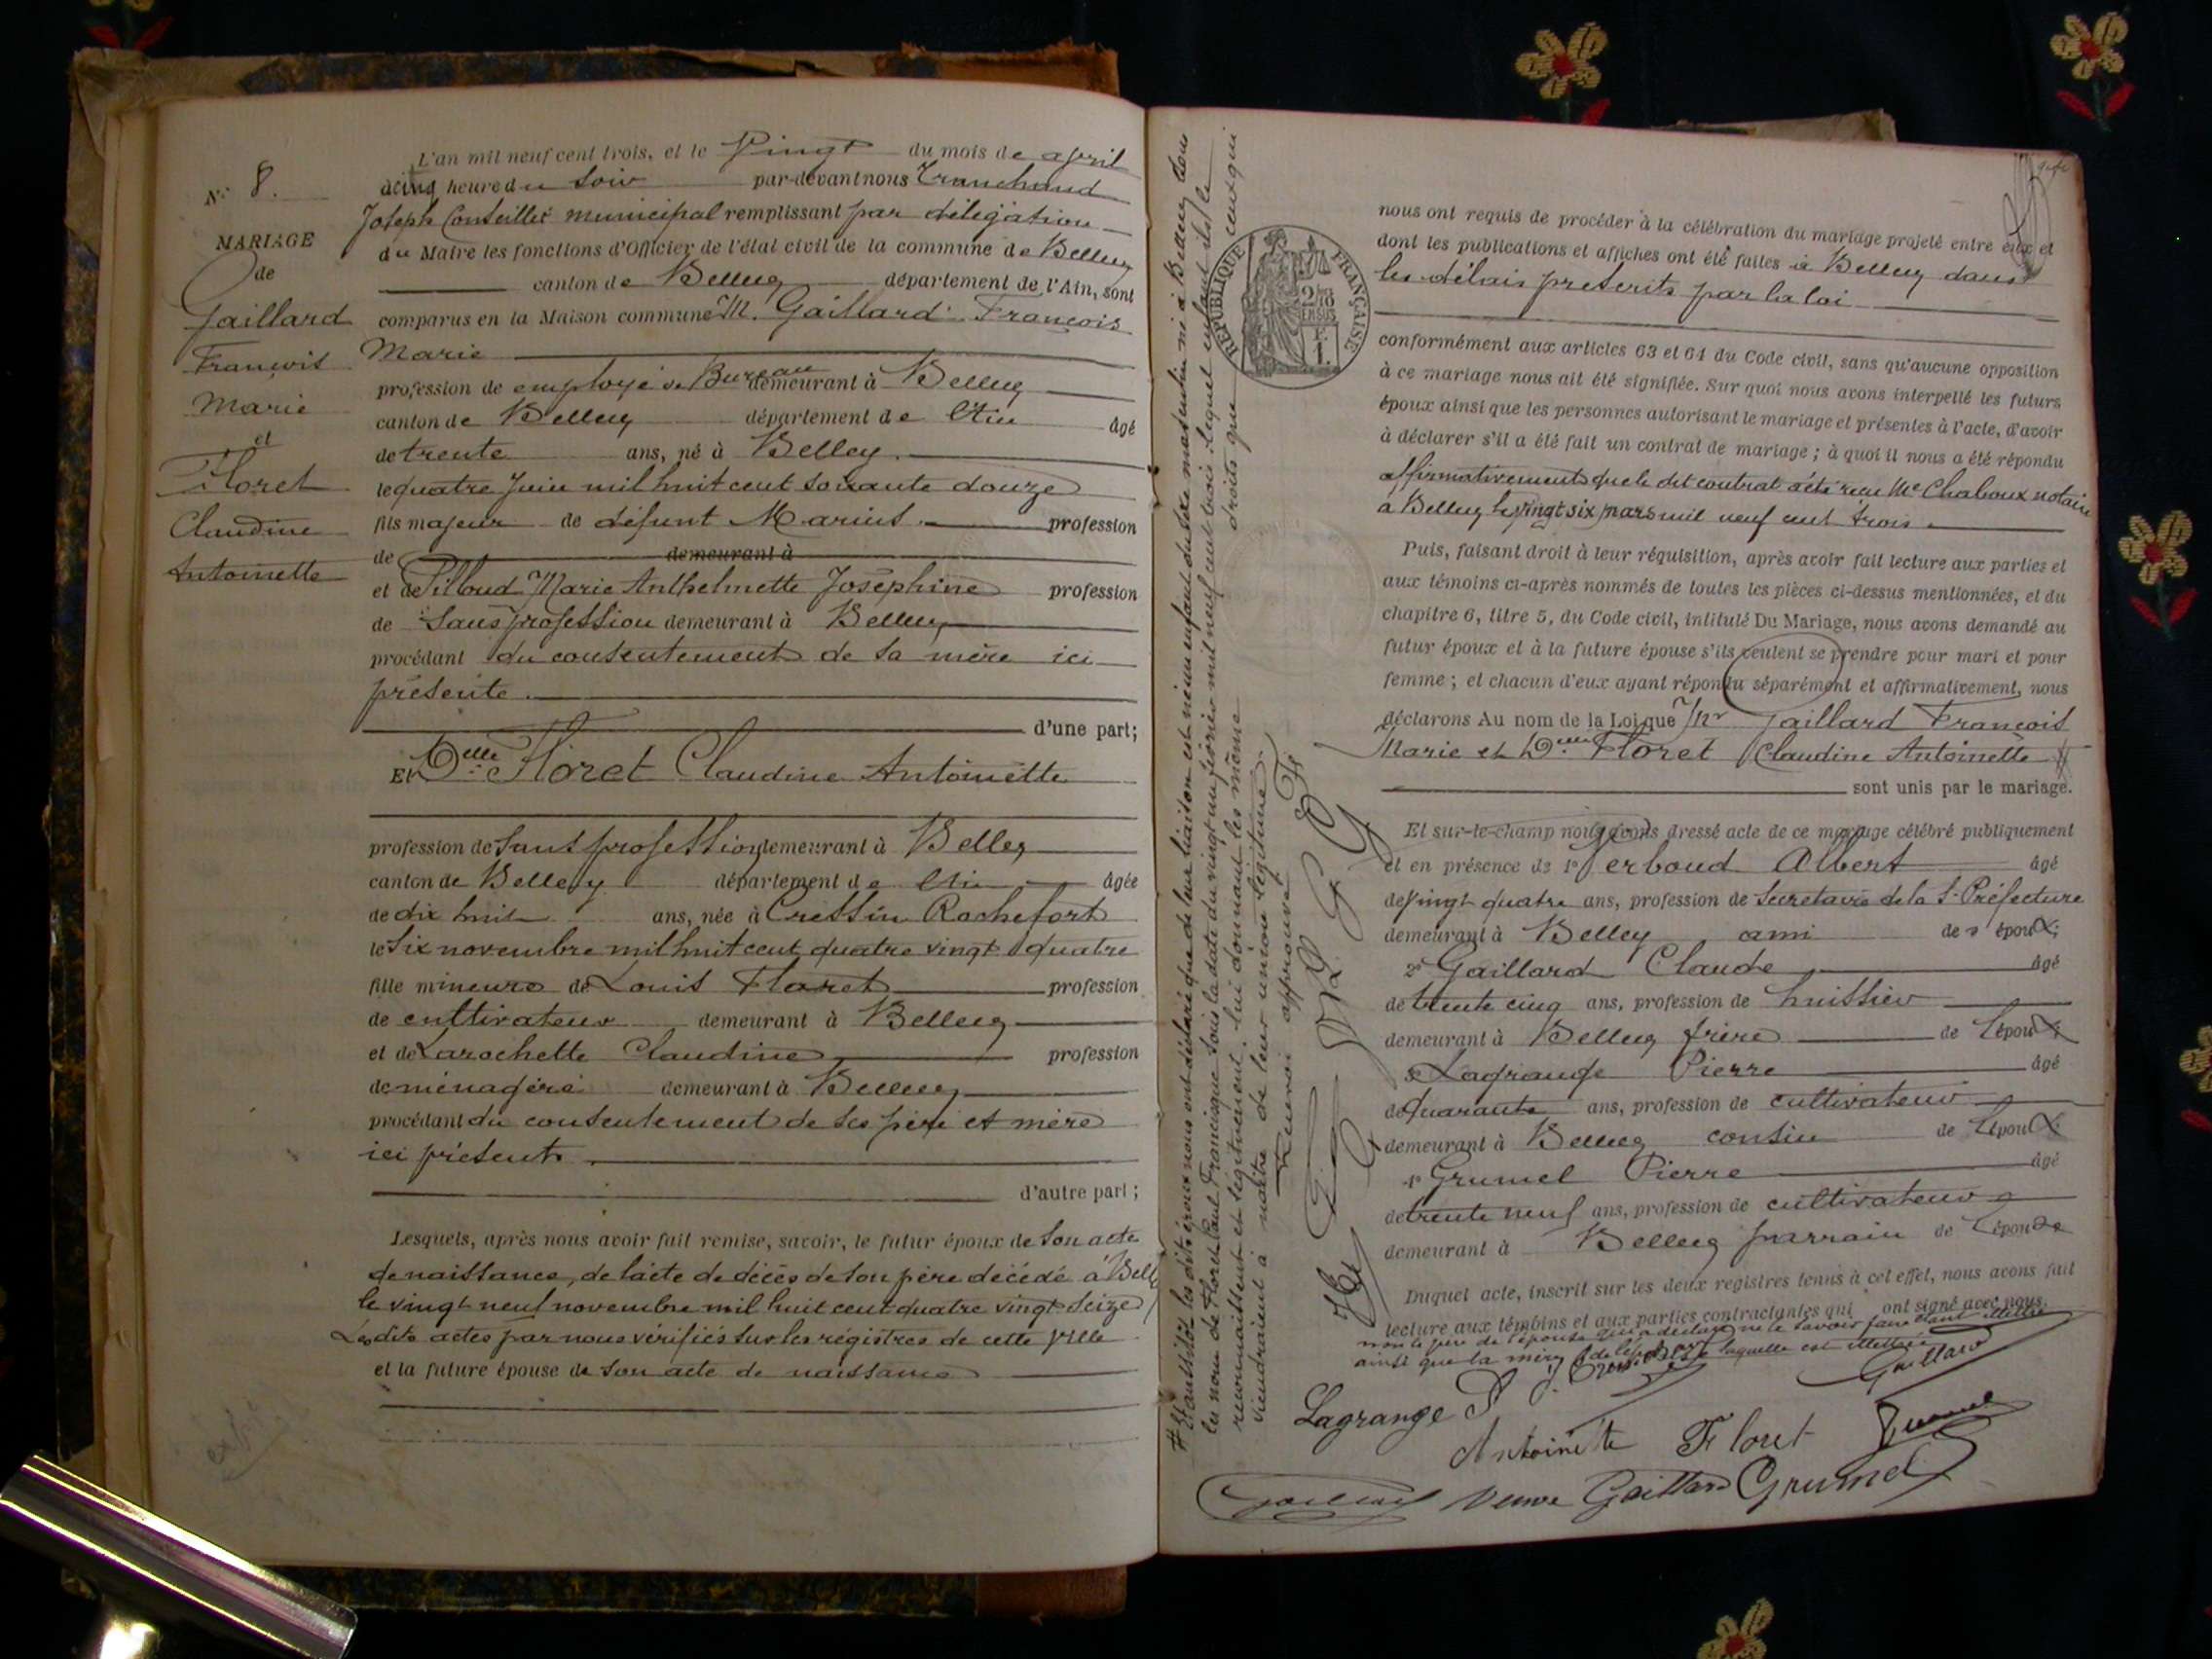 N° 8.
MARIAGE
de
Gaillard
François
Marie
et
Floret
Claudine
Antoinette
L'an mil neuf cent trois, et le Vingt du mois de april
à cinq heure du soir par-devant nous Tranchand
Joseph Conseiller municipal remplissant par délégation
du Maire les fonctions d'Officier de l'état civil de la commune de Belley
canton de Belley département de l'Ain, sont
comparus en la Maison commune M. Gaillard François
Marie
profession de employé de Bureau demeurant à Belley
canton de Belley département de l'Ain âgé
de trente ans, né à Belley.
le quatre Juin mil huit cent soixante douze
fils majeur de défunt Marius. profession
de demeurant à
et de Pilloud Marie Anthelmette Joséphine profession
de sans profession demeurant à Belley
procédant du consentement de sa mère ici
présente.
d'une part;
Et Delle Floret Claudine Antoinette
profession de sans profession demeurant à Belley
canton de Belley département de l'Ain âgée
de dix huit ans, née à Cressin Rochefort
le six novembre mil huit cent quatre vingt quatre
fille mineure de Louis Floret profession
de cultivateur demeurant à Belley
et de Larochette Claudine profession
de ménagère demeurant à Belley
procédant du consentement de ses père et mère
ici présents.
d'autre part;
Lesquels, après nous avoir fait remise, savoir, le futur époux de son acte
de naissance, de l'acte de décès de son père décédé à Belley
le vingt neuf novembre mil huit cent quatre vingt seize
Lesdits actes par nous vérifiés sur les régistres de cette ville
et la future épouse de son acte de naissance
# Et aussitôt les dits époux nous ont déclaré que de leur liaison est né un enfant du sexe masculin né à Belley sous
les noms de Floret Paul Francisque sous la date du vingt un février mil neuf cent trois lequel enfant ils le
reconnaissent et légitiment, lui donnant les même droits que ceux qui
viendraient à naître de leur union légitime
Renvoi approuvé
RÉPUBLIQUE FRANÇAISE
nous ont requis de procéder à la célébration du mariage projeté entre eux et
dont les publications et affiches ont été faites à Belley dans
les délais prescrits par la loi
conformément aux articles 63 et 64 du Code civil, sans qu'aucune opposition
à ce mariage nous ait été signifiée. Sur quoi nous avons interpellé les futurs
époux ainsi que les personnes autorisant le mariage et présentes à l'acte, d'avoir
à déclarer s'il a été fait un contrat de mariage; à quoi il nous a été répondu
affirmativement que le dit contrat a été recu Me Chaboux notaire
à Belley le vingt six mars mil neuf cent trois.
Puis, faisant droit à leur réquisition, après avoir fait lecture aux parties et
aux témoins ci-après nommés de toutes les pièces ci-dessus mentionnées, et du
chapitre 6, titre 5, du Code civil, intitulé Du Mariage, nous avons demandé au
futur époux et à la future épouse s'ils veulent se prendre pour mari et pour
femme; et chacun d'eux ayant répondu séparément et affirmativement, nous
déclarons Au nom de la Loi que Mr Gaillard François
Marie et Delle Floret Claudine Antoinette #
sont unis par le mariage.
Et sur-le-champ nous avons dressé acte de ce mariage célébré publiquement
et en présence de 1° Gerboud Albert âgé
de vingt quatre ans, profession de Secretaire de la S-Préfecture
demeurant à Belley ami de l'époux;
2° Gaillard Claude âgé
de trente cinq ans, profession de huissier
demeurant à Belley frère de l'époux
3° Lagrange Pierre âgé
de quarante ans, profession de cultivateur
demeurant à Belley cousin de l'époux
4° Grumel Pierre âgé
de trente neuf ans, profession de cultivateur
demeurant à Belley parrain de l'épouse
Duquel acte, inscrit sur les deux registres tenus à cet effet, nous avons fait
lecture aux témoins et aux parties contractantes qui ont signé avec nous.
non le père de l'épouse qui a déclaré ne le savoir faire étant illettré
ainsi que la mère de l'épouse laquelle est illettrée
Gaillard
Lagrange P
Antoinette Floret
Veuve Gaillard Grumel